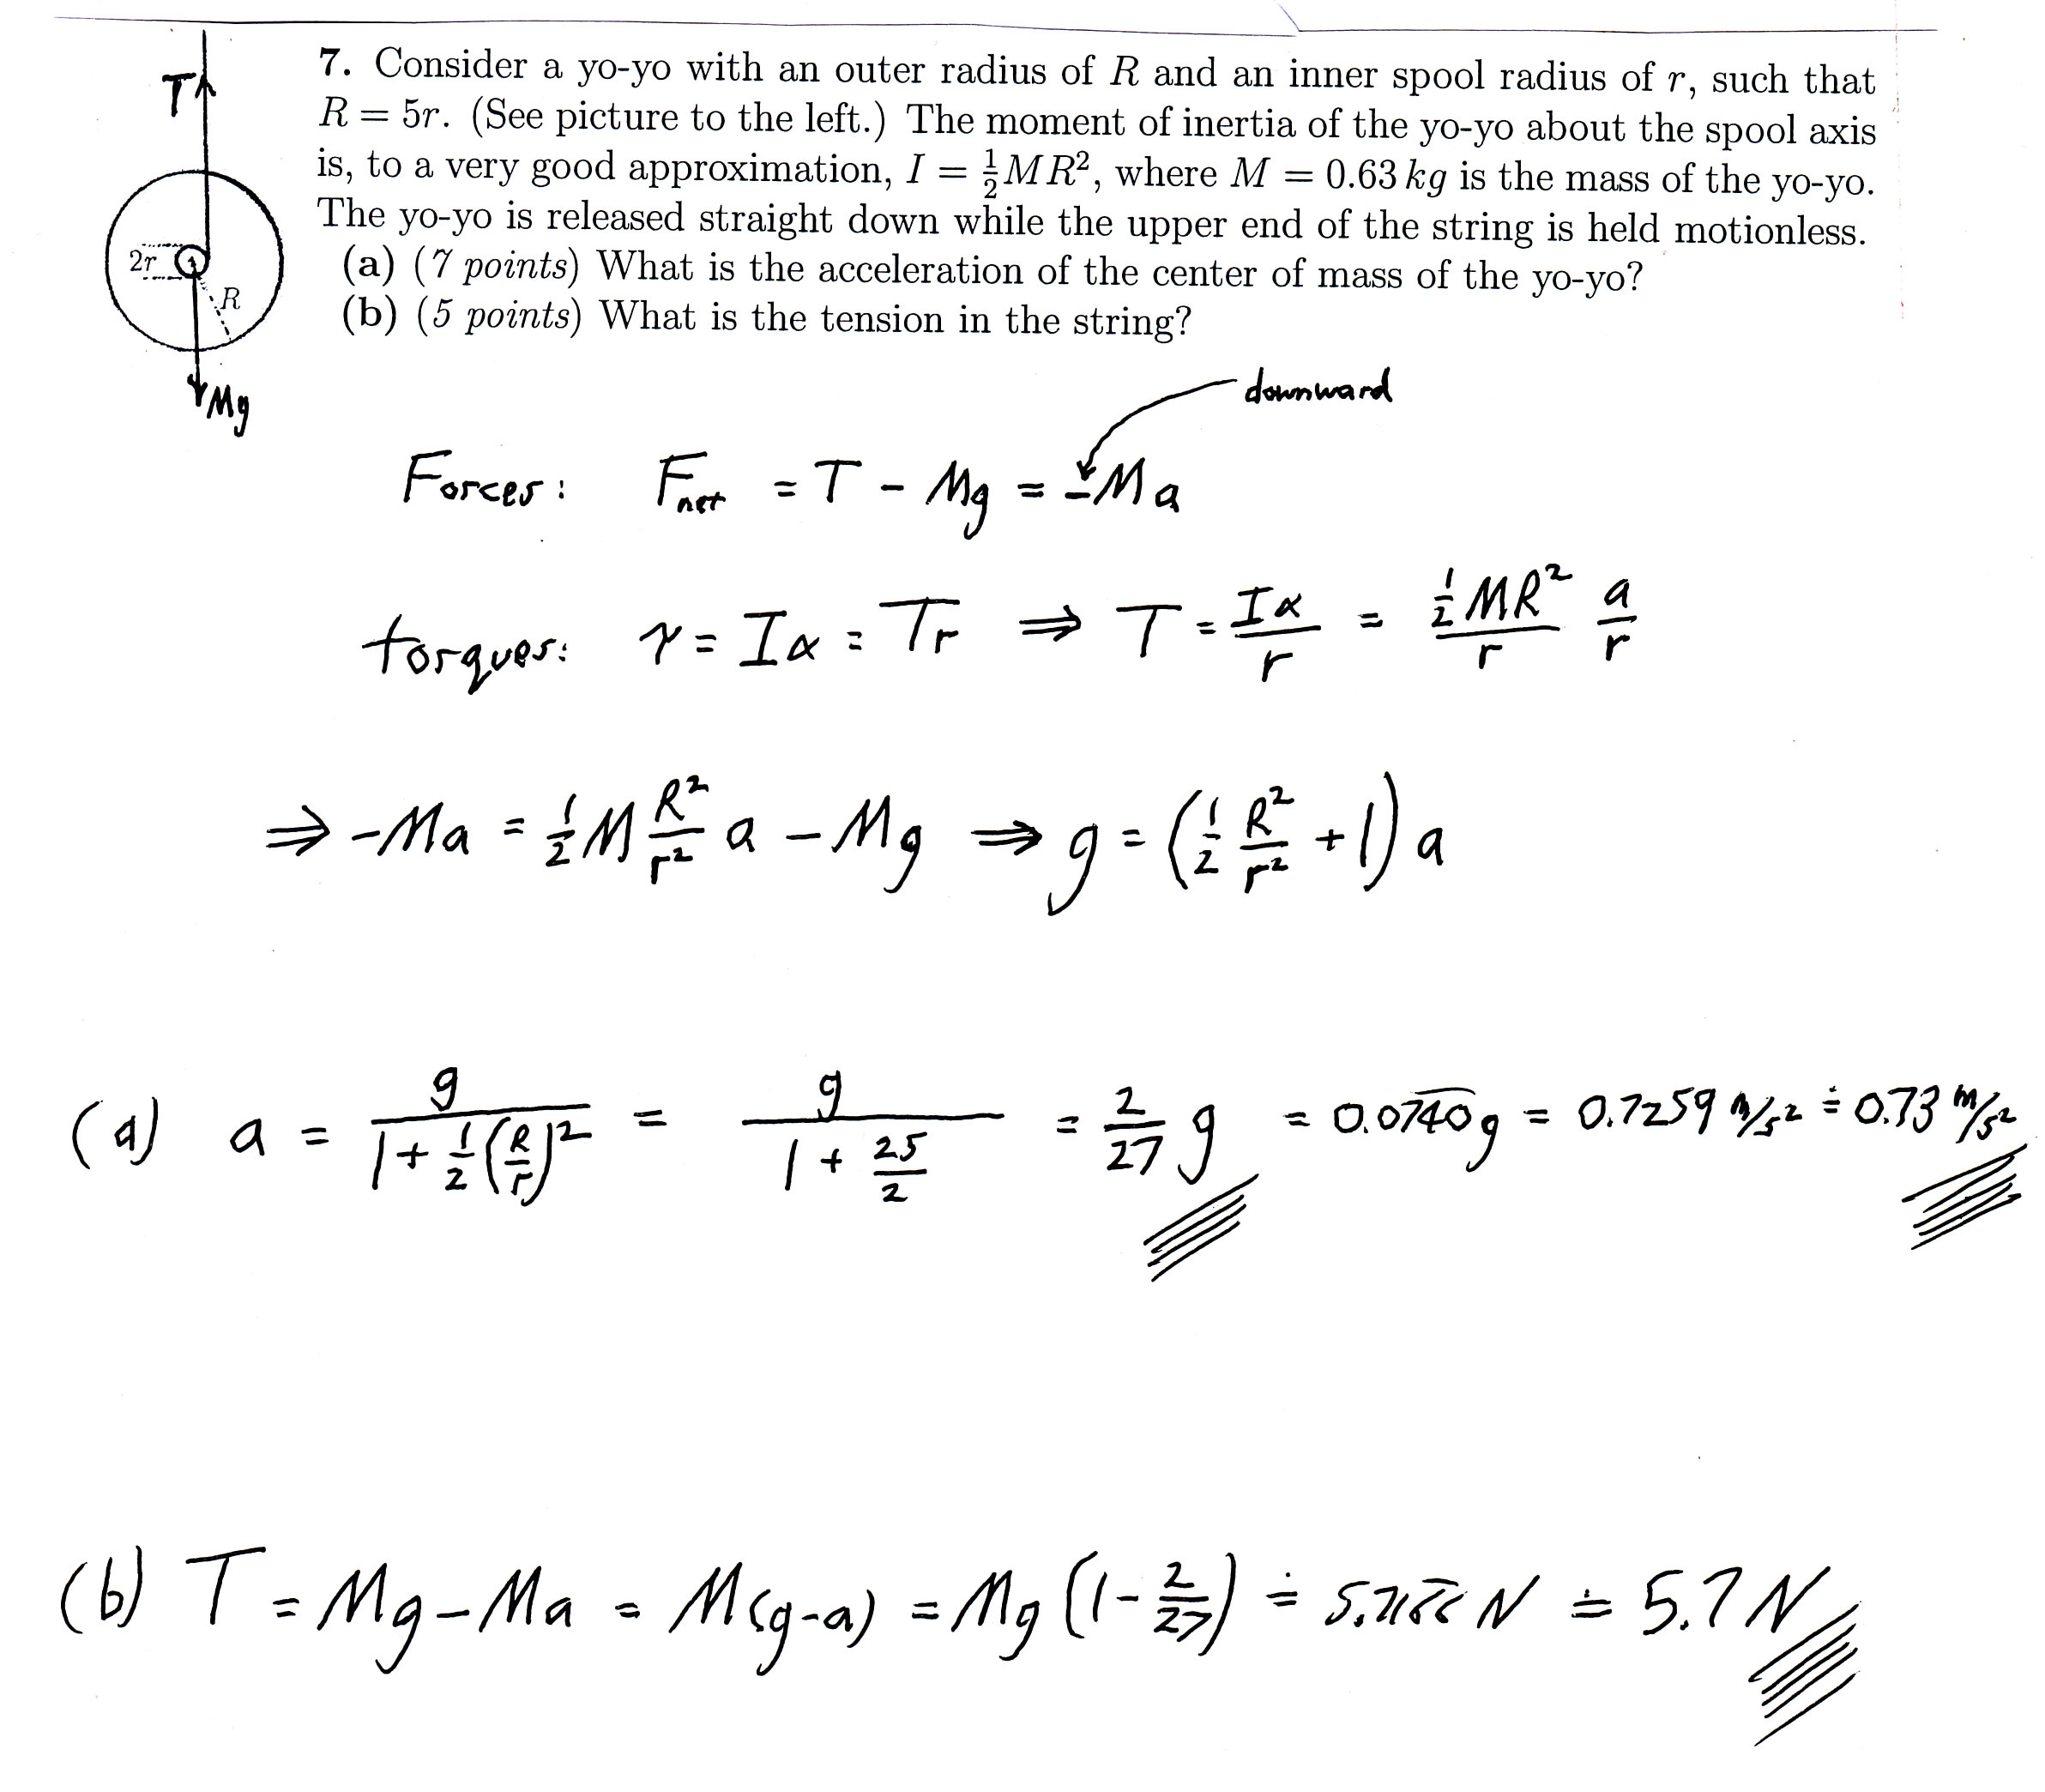 T
2r
R
Mg
7. Consider a yo-yo with an outer radius of R and an inner spool radius of r, such that
R = 5r. (See picture to the left.) The moment of inertia of the yo-yo about the spool axis
is, to a very good approximation, I = ½MR², where M = 0.63 kg is the mass of the yo-yo.
The yo-yo is released straight down while the upper end of the string is held motionless.
(a) (7 points) What is the acceleration of the center of mass of the yo-yo?
(b) (5 points) What is the tension in the string?
downward
Forces: F_net = T - Mg = -Ma
torques: τ = Iα = Tr ⇒ T = Iα/r = ½MR²/r a/r
⇒ -Ma = ½M R²/r² a - Mg ⇒ g = (½ R²/r² + 1) a
(a) a = g/(1 + ½(R/r)²) = g/(1 + 25/2) = 2/27 g = 0.0740g = 0.7259 m/s² ≐ 0.73 m/s²
(b) T = Mg - Ma = M(g-a) = Mg(1 - 2/27) ≐ N ≐ 5.7 N